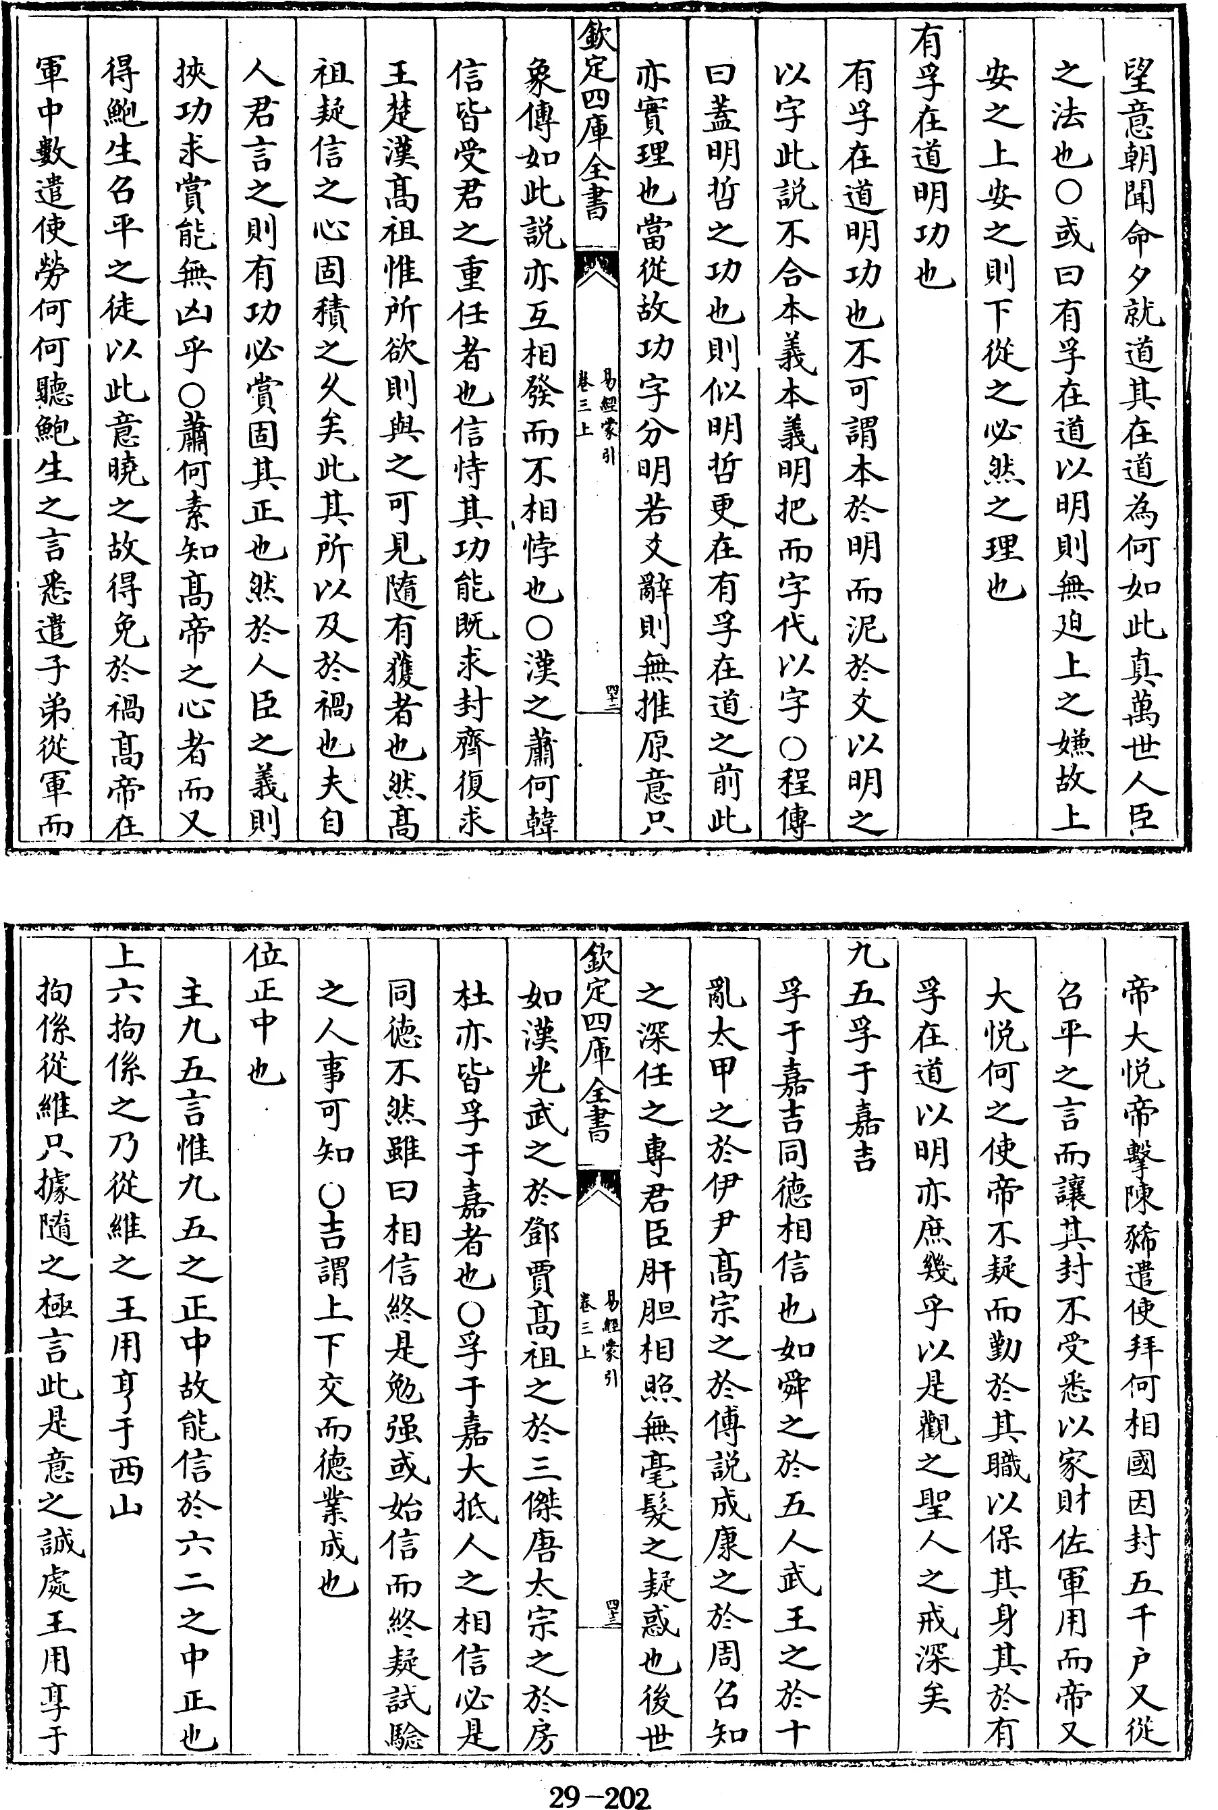 望意朝聞命夕就道其在道為何如此真萬世人臣
之法也○或曰有孚在道以明則無廹上之嫌故上
安之上安之則下從之必然之理也
有孚在道明功也
有孚在道明功也不可謂本於明而泥於爻以明之
以字此説不合本義本義明把而字代以字○程傳
曰蓋明哲之功也則似明哲更在有孚在道之前此
亦實理也當從故功字分明若爻辭則無推原意只
欽定四庫全書
易經蒙引
卷三上
四十二
象傳如此説亦互相發而不相悖也○漢之蕭何韓
信皆受君之重任者也信恃其功能既求封齊復求
王楚漢髙祖惟所欲則與之可見隨有獲者也然髙
祖疑信之心固積之久矣此其所以及於禍也夫自
人君言之則有功必賞固其正也然於人臣之義則
挾功求賞能無凶乎○蕭何素知髙帝之心者而又
得鮑生召平之徒以此意曉之故得免於禍髙帝在
軍中數遣使勞何何聽鮑生之言悉遣子弟從軍而
帝大悦帝擊陳豨遣使拜何相國因封五千户又從
召平之言而讓其封不受悉以家財佐軍用而帝又
大悦何之使帝不疑而勤於其職以保其身其於有
孚在道以明亦庶幾乎以是觀之聖人之戒深矣
九五孚于嘉吉
孚于嘉吉同徳相信也如舜之於五人武王之於十
亂太甲之於伊尹髙宗之於傅説成康之於周召知
之深任之專君臣肝胆相照無毫髮之疑惑也後世
欽定四庫全書
易經蒙引
卷三上
四十三
如漢光武之於鄧賈髙祖之於三傑唐太宗之於房
杜亦皆孚于嘉者也○孚于嘉大抵人之相信必是
同徳不然雖曰相信終是勉强或始信而終疑試驗
之人事可知○吉謂上下交而徳業成也
位正中也
主九五言惟九五之正中故能信於六二之中正也
上六拘係之乃從維之王用亨于西山
拘係從維只據隨之極言此是意之誠處王用享于
29-202